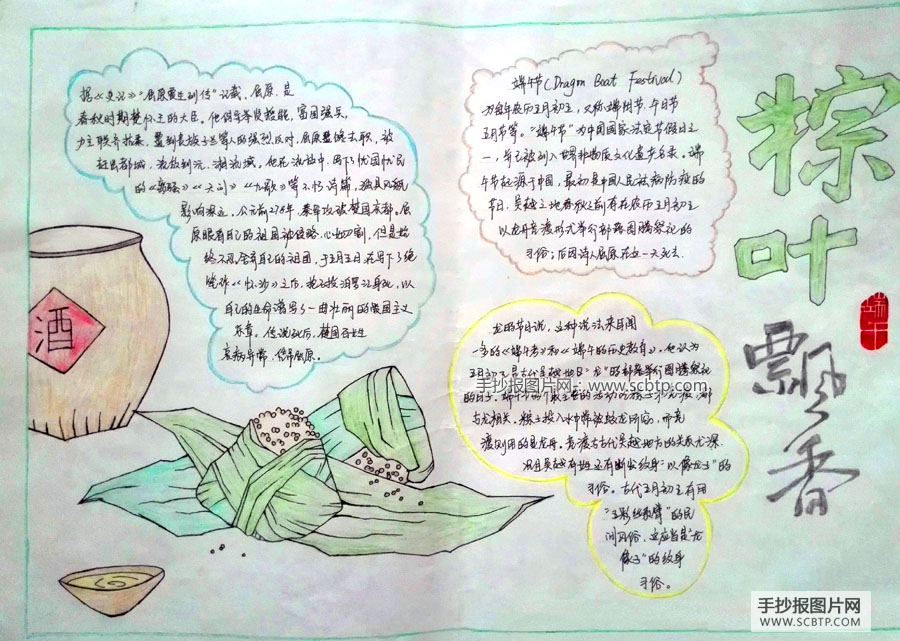 据《史记》"屈原贾生列传"记载，屈原，是
春秋时期楚怀王的大臣。他倡导举贤授能，富国强兵，
力主联齐抗秦，遭到贵族子兰等人的强烈反对，屈原遭馋去职，被
赶出都城，流放到沅、湘流域。他在流放中，写下了忧国忧民
的《离骚》《天问》《九歌》等不朽诗篇，独具风貌
影响深远。公元前278年，秦军攻破楚国京都。屈
原眼看自己的祖国被侵略，心如刀割，但是始
终不忍舍弃自己的祖国，于五月五日，在写下了绝
笔作《怀沙》之后，抱石投汨罗江身死，以
自己的生命谱写了一曲壮丽的爱国主义
乐章。传说死后，楚国百姓
哀痛异常，
屈原。
端午节(Dragon Boat Festival)
为每年农历五月初五，又称端阳节、午日节
五月节等。"端午节"为中国国家法定节假日之
一，并已被列入世界非物质文化遗产名录。端
午节起源于中国，最初是中国人民祛病防疫的
节日，吴越之地春秋之前有在农历五月初五
以龙舟竞渡形式举行部落图腾祭祀的
习俗；后因诗人屈原在这一天死去
龙的节日说，这种说法来自闻
一多的《端午考》和《端午的历史教育》。他认为
五月初五是古代吴越地区"龙"的部落举行图腾祭祀
的日子。
与龙相关。粽子投入水中常被蛟龙所窃，而竞
渡则用的是龙舟。竞渡与古代吴越地方的关系尤深
况且吴越百姓还有断发纹身"以像龙子"的
习俗。古代五月初五有用
"五彩丝系臂"的民
间风俗，这应当是"龙
像子"的纹身
习俗。
粽
叶
飘
香
端午
酒
手抄报图片网：www.scbtp.com
手抄报图片网
WWW.SCBTP.COM